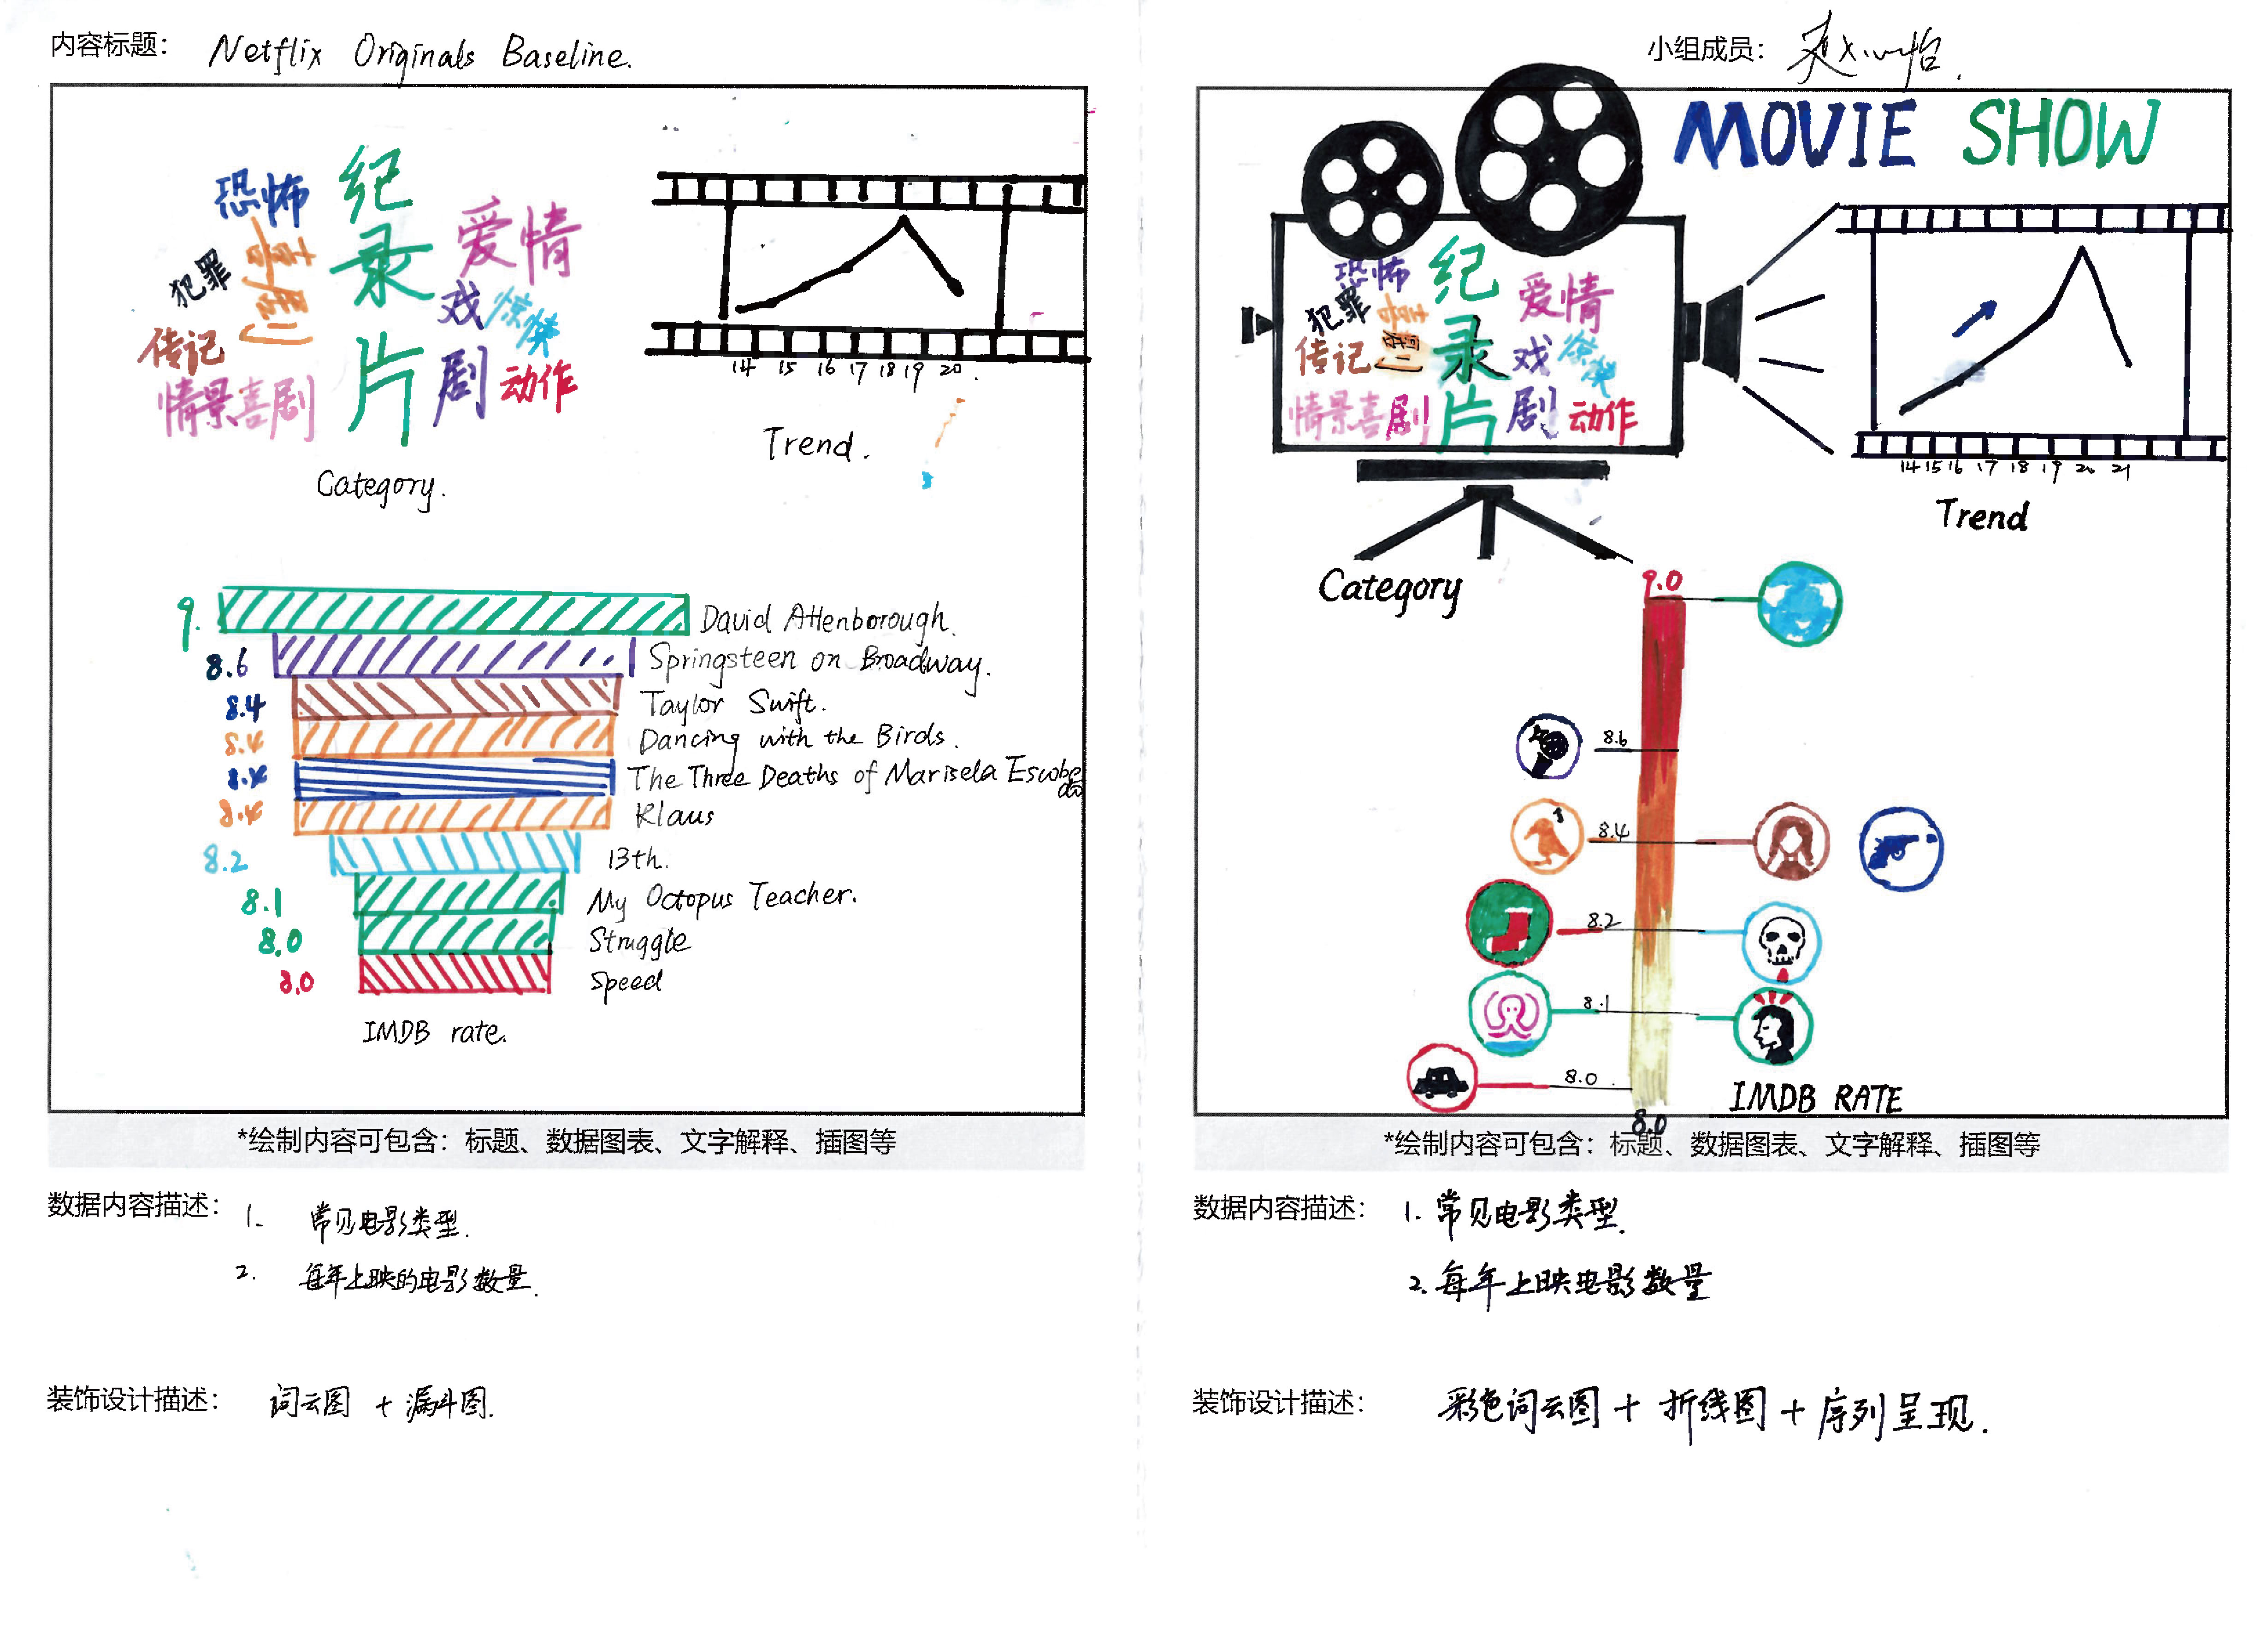 内容标题： Netflix Originals Baseline.
恐怖
纪录片
爱情
喜剧
犯罪
戏剧
惊悚
传记
情景喜剧
动作
Category.
14 15 16 17 18 19 20
Trend.
9. David Attenborough.
8.6 Springsteen on Broadway.
8.4 Taylor Swift.
8.4 Dancing with the Birds.
8.4 The Three Deaths of Marisela Escobedo
8.4 Klaus
8.2 13th.
8.1 My Octopus Teacher.
8.0 Struggle
8.0 Speed
IMDB rate.
*绘制内容可包含：标题、数据图表、文字解释、插图等
数据内容描述： 1. 常见电影类型.
2. 每年上映的电影数量.
装饰设计描述： 词云图 + 漏斗图.
小组成员：
MOVIE SHOW
恐怖
纪录片
爱情
犯罪
喜剧
传记
戏剧
惊悚
情景喜剧
动作
Category
14 15 16 17 18 19 20 21
Trend
9.0
8.6
8.4
8.2
8.1
8.0
8.0
IMDB RATE
*绘制内容可包含：标题、数据图表、文字解释、插图等
数据内容描述： 1. 常见电影类型.
2. 每年上映电影数量
装饰设计描述： 彩色词云图 + 折线图 + 序列呈现.